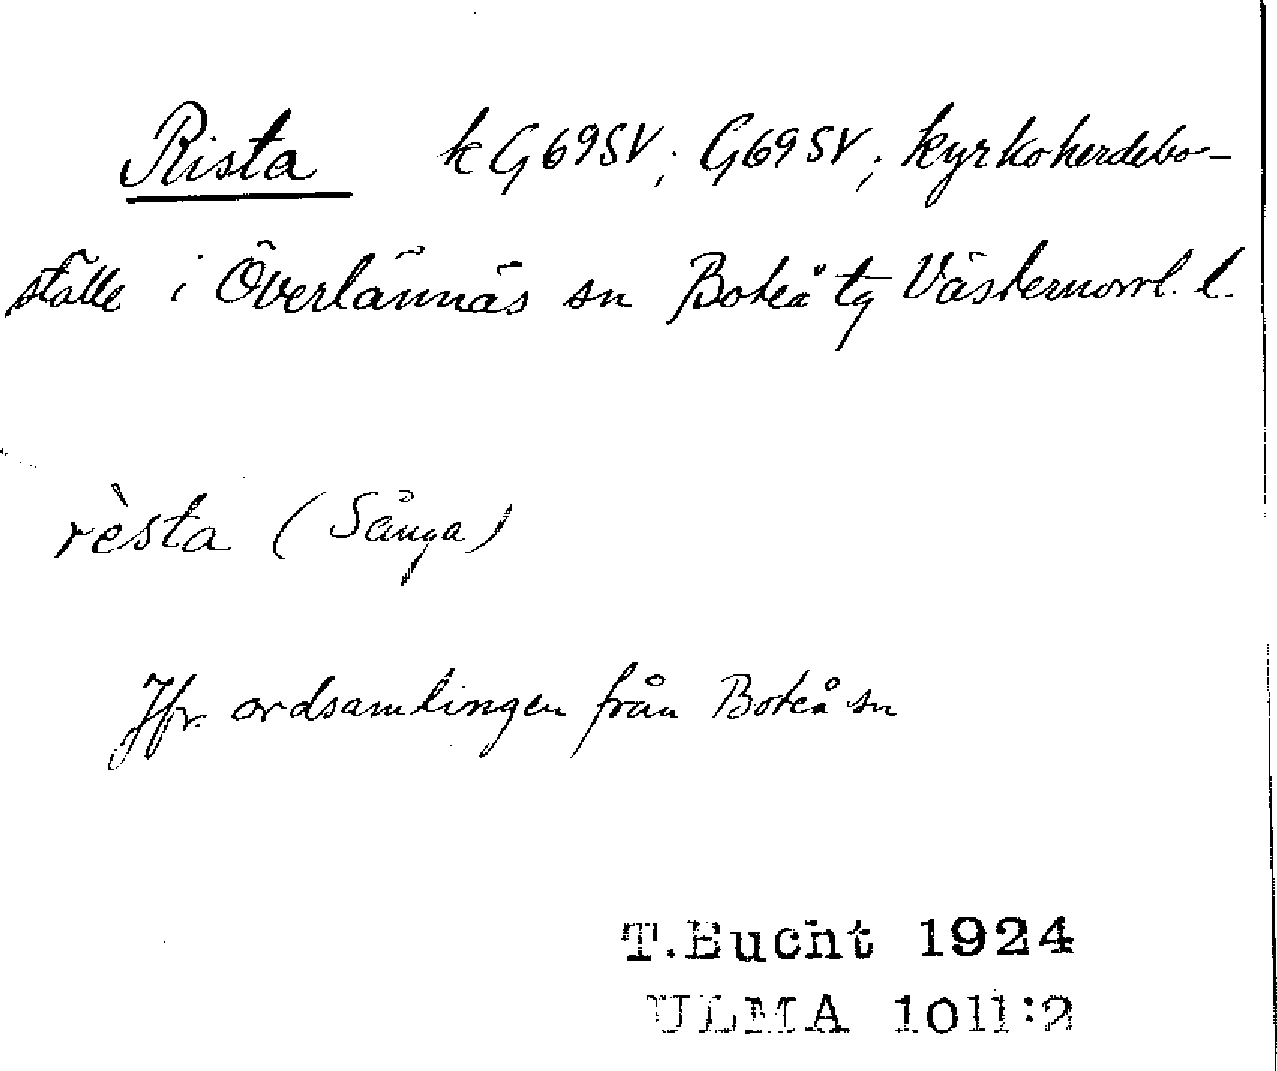 Rista k G69SV; G69SV; kyrkoherdebo-
ställe i Överlännäs sn Boteå tg Västernorrl. l.
rèsta (Sånga)
Jfr ordsamlingen från Boteå sn
T.Bucht 1924
ULMA 1011:2